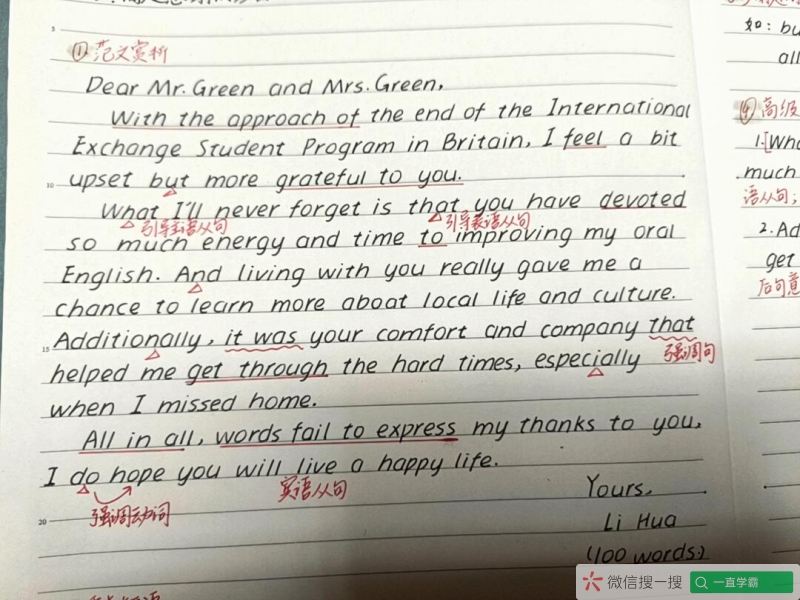 ① 范文赏析
Dear Mr. Green and Mrs. Green,
With the approach of the end of the International
Exchange Student Program in Britain, I feel a bit
upset but more grateful to you.
What I'll never forget is that you have devoted
引导主语从句 引导表语从句
so much energy and time to improving my oral
English. And living with you really gave me a
chance to learn more about local life and culture.
Additionally, it was your comfort and company that
helped me get through the hard times, especially 强调句
when I missed home.
All in all, words fail to express my thanks to you,
I do hope you will live a happy life.
强调动词 宾语从句
Yours,
Li Hua
(100 words)
如: bu
all
④ 高级
1.[Wha
much
语从句;
2. Ad
get
后句意
5
10
15
20
微信搜一搜 一直学霸